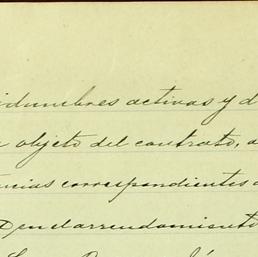 idumbres activas y d
objeto del contrato, a
ncias correspondientes a
en el arrendamiento